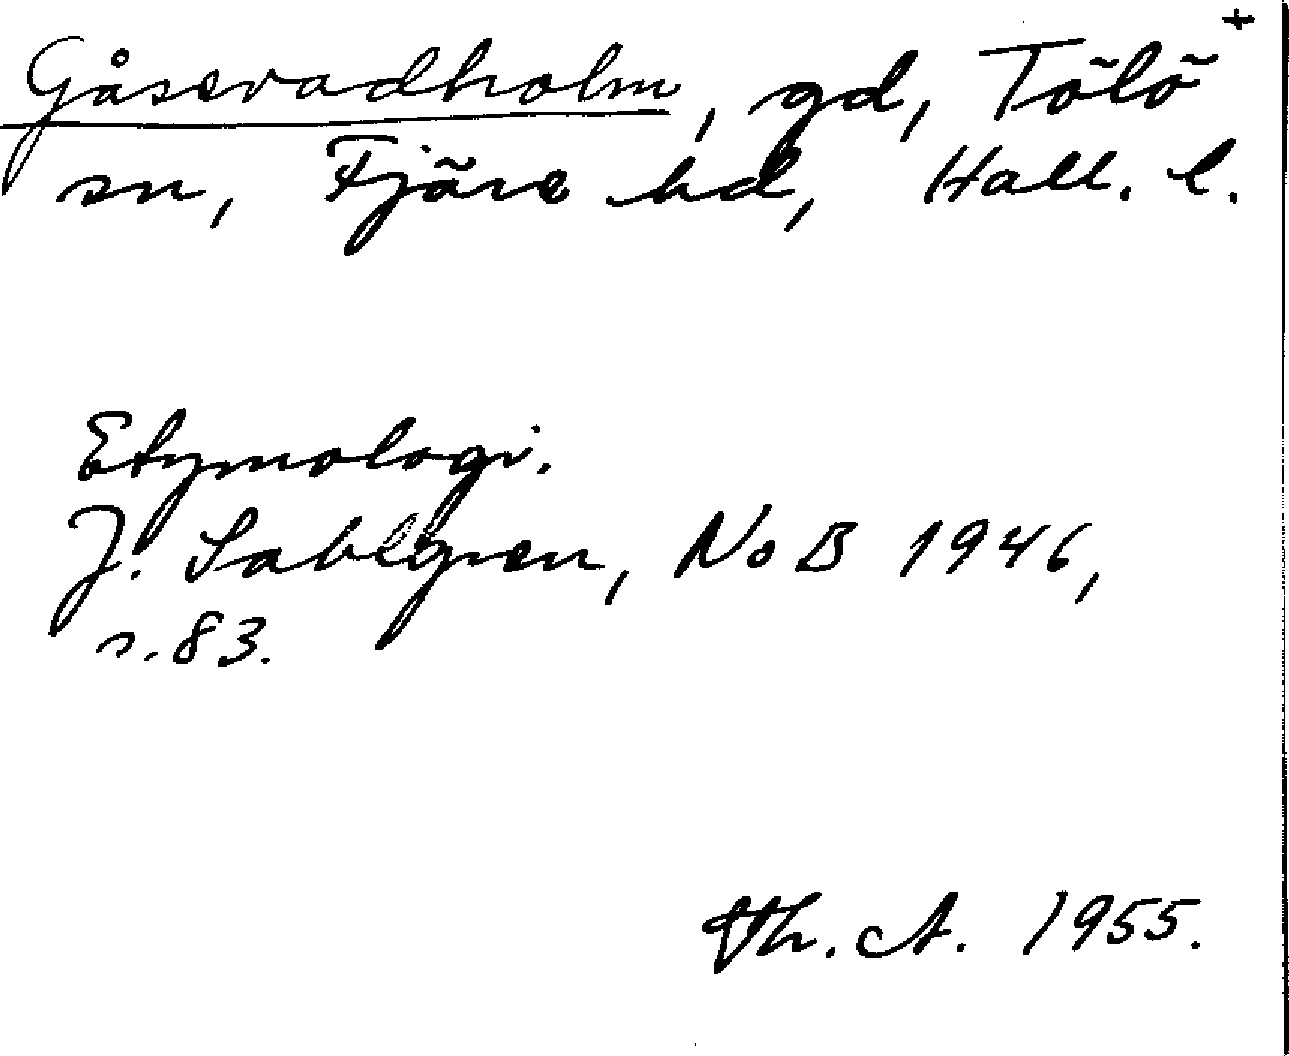 Gåsevadholm, gd, Tölö +
sn, Fjäre hd, Hall. l.
Etymologi.
J. Sahlgren, NoB 1946,
s. 83.
Th. A. 1955.